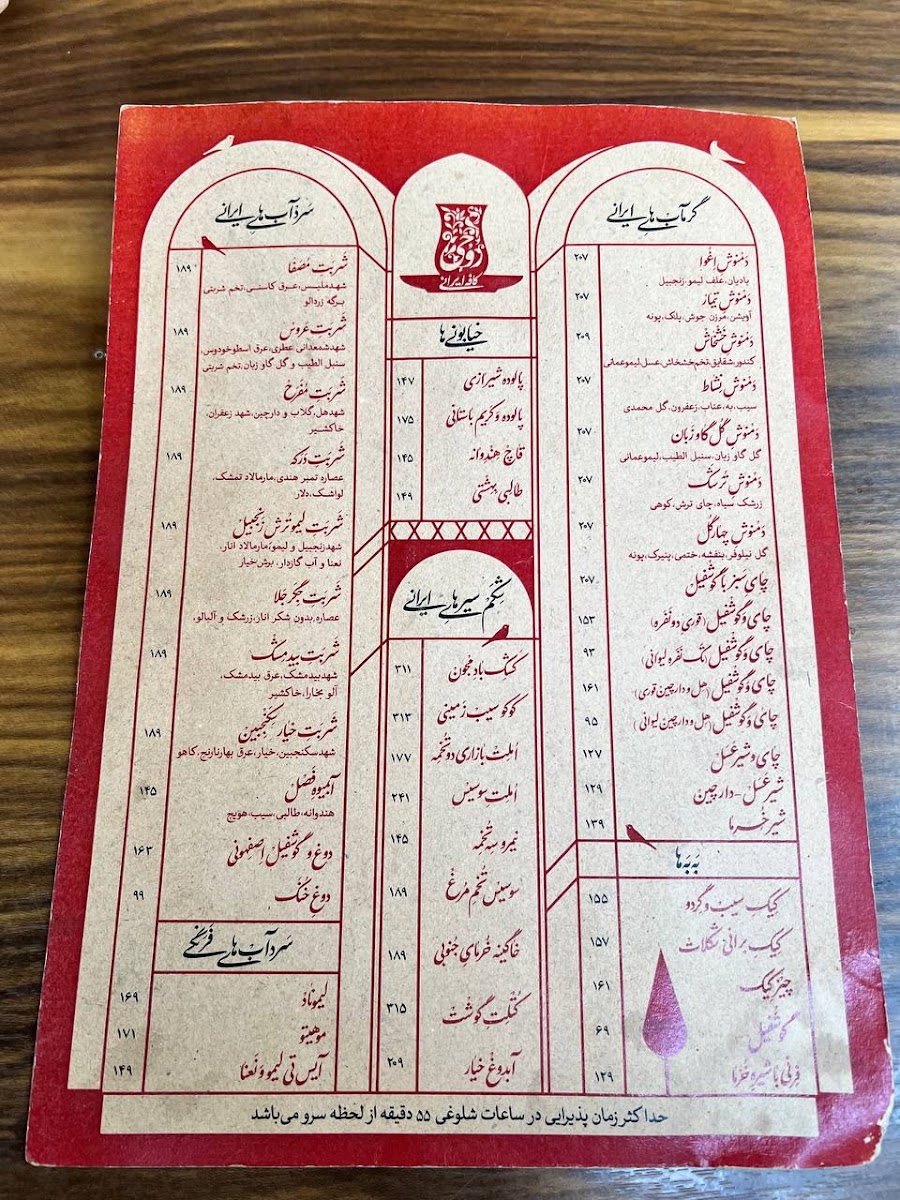 گرمآب هاے ایرانے
دمنوش اغوا ۲۰۷
بادیان، علف لیمو، زنجبیل
دمنوش تیمار ۲۰۷
آویشن، مرزن جوش، پلک، پونه
دمنوش خشخاش ۲۰۹
کندور، شقایق، تخم خشخاش، عسل، لیموعمانی
دمنوش نشاط ۲۰۷
سیب، به، عناب، زعفرون، گل محمدی
دمنوش گل گاو زبان ۲۰۷
گل گاو زبان، سنبل الطیب، لیموعمانی
دمنوش ترشک ۲۰۷
زرشک سیاه، چای ترش، کوهی
دمنوش چهارگل ۲۰۷
گل نیلوفر، بنفشه، ختمی، پنیرک، پونه
چای سبز با گوشفیل ۲۰۷
چای و گوشفیل (قوری دو نفره) ۱۵۳
چای و گوشفیل (تک نفره لیوانی) ۹۳
چای و گوشفیل (هل و دارچین قوری) ۱۶۱
چای و گوشفیل (هل و دارچین لیوانی) ۹۵
چای و شیر عسل ۱۲۷
شیر عسل - دارچین ۱۲۹
شیر خرما ۱۳۹
به به ها
کیک سیب و گردو ۱۵۵
کیک برانی شکلات ۱۵۷
چیز کیک ۱۶۱
گوشفیل ۶۹
فرنی با شیره خرما ۱۲۹
کافه ایرانی
خیابونی ها
پالوده شیرازی ۱۴۷
پالوده و کریم باستانی ۱۷۵
قاچ هندوانه ۱۴۵
طالبی بهشتی ۱۴۹
شکم سیر هاے ایرانے
کشک بادمجون ۳۱۱
کوکو سیب زمینی ۳۱۳
املت بازاری دو تخمه ۱۷۷
املت سوسیس ۲۴۱
نیمرو سه تخمه ۱۴۵
سوسیس تخم مرغ ۱۸۹
خاگینه خرمای جنوبی ۱۸۹
کتلت گوشت ۳۱۵
آبدوغ خیار ۲۰۹
سرد آب هاے ایرانے
شربت مصفا ۱۸۹
شهدملیس، عرق کاسنی، تخم شربتی
برگه زردالو
شربت عروس ۱۸۹
شهدشمعدانی عطری، عرق اسطوخودوس،
سنبل الطیب و گل گاو زبان، تخم شربتی
شربت مفرح ۱۸۹
شهدهل، گلاب و دارچین، شهد زعفران،
خاکشیر
شربت درکه ۱۸۹
عصاره تمبر هندی، مارمالاد تمشک،
لواشک، دلار
شربت لیموترش زنجبیل ۱۸۹
شهدزنجبیل و لیمو، مارمالاد انار،
نعنا و آب گازدار، برش خیار
شربت جگر جلا ۱۸۹
عصاره بدون شکر انار، زرشک و آلبالو،
شربت بیدمشک ۱۸۹
شهدبیدمشک، عرق بیدمشک،
آلو بخارا، خاکشیر
شربت خیار سکنجبین ۱۸۹
شهدسکنجبین، خیار، عرق بهارنارنج، کاهو
آبمیوه فصل ۱۴۵
هندوانه، طالبی، سیب، هویج
دوغ و گوشفیل اصفهونی ۱۶۳
دوغ خنک ۹۹
سرد آب هاے فرنگے
لیموناد ۱۶۹
موهیتو ۱۷۱
آیس تی لیمو و نعنا ۱۴۹
حداکثر زمان پذیرایی در ساعات شلوغی ۵۵ دقیقه از لحظه سرو می‌باشد